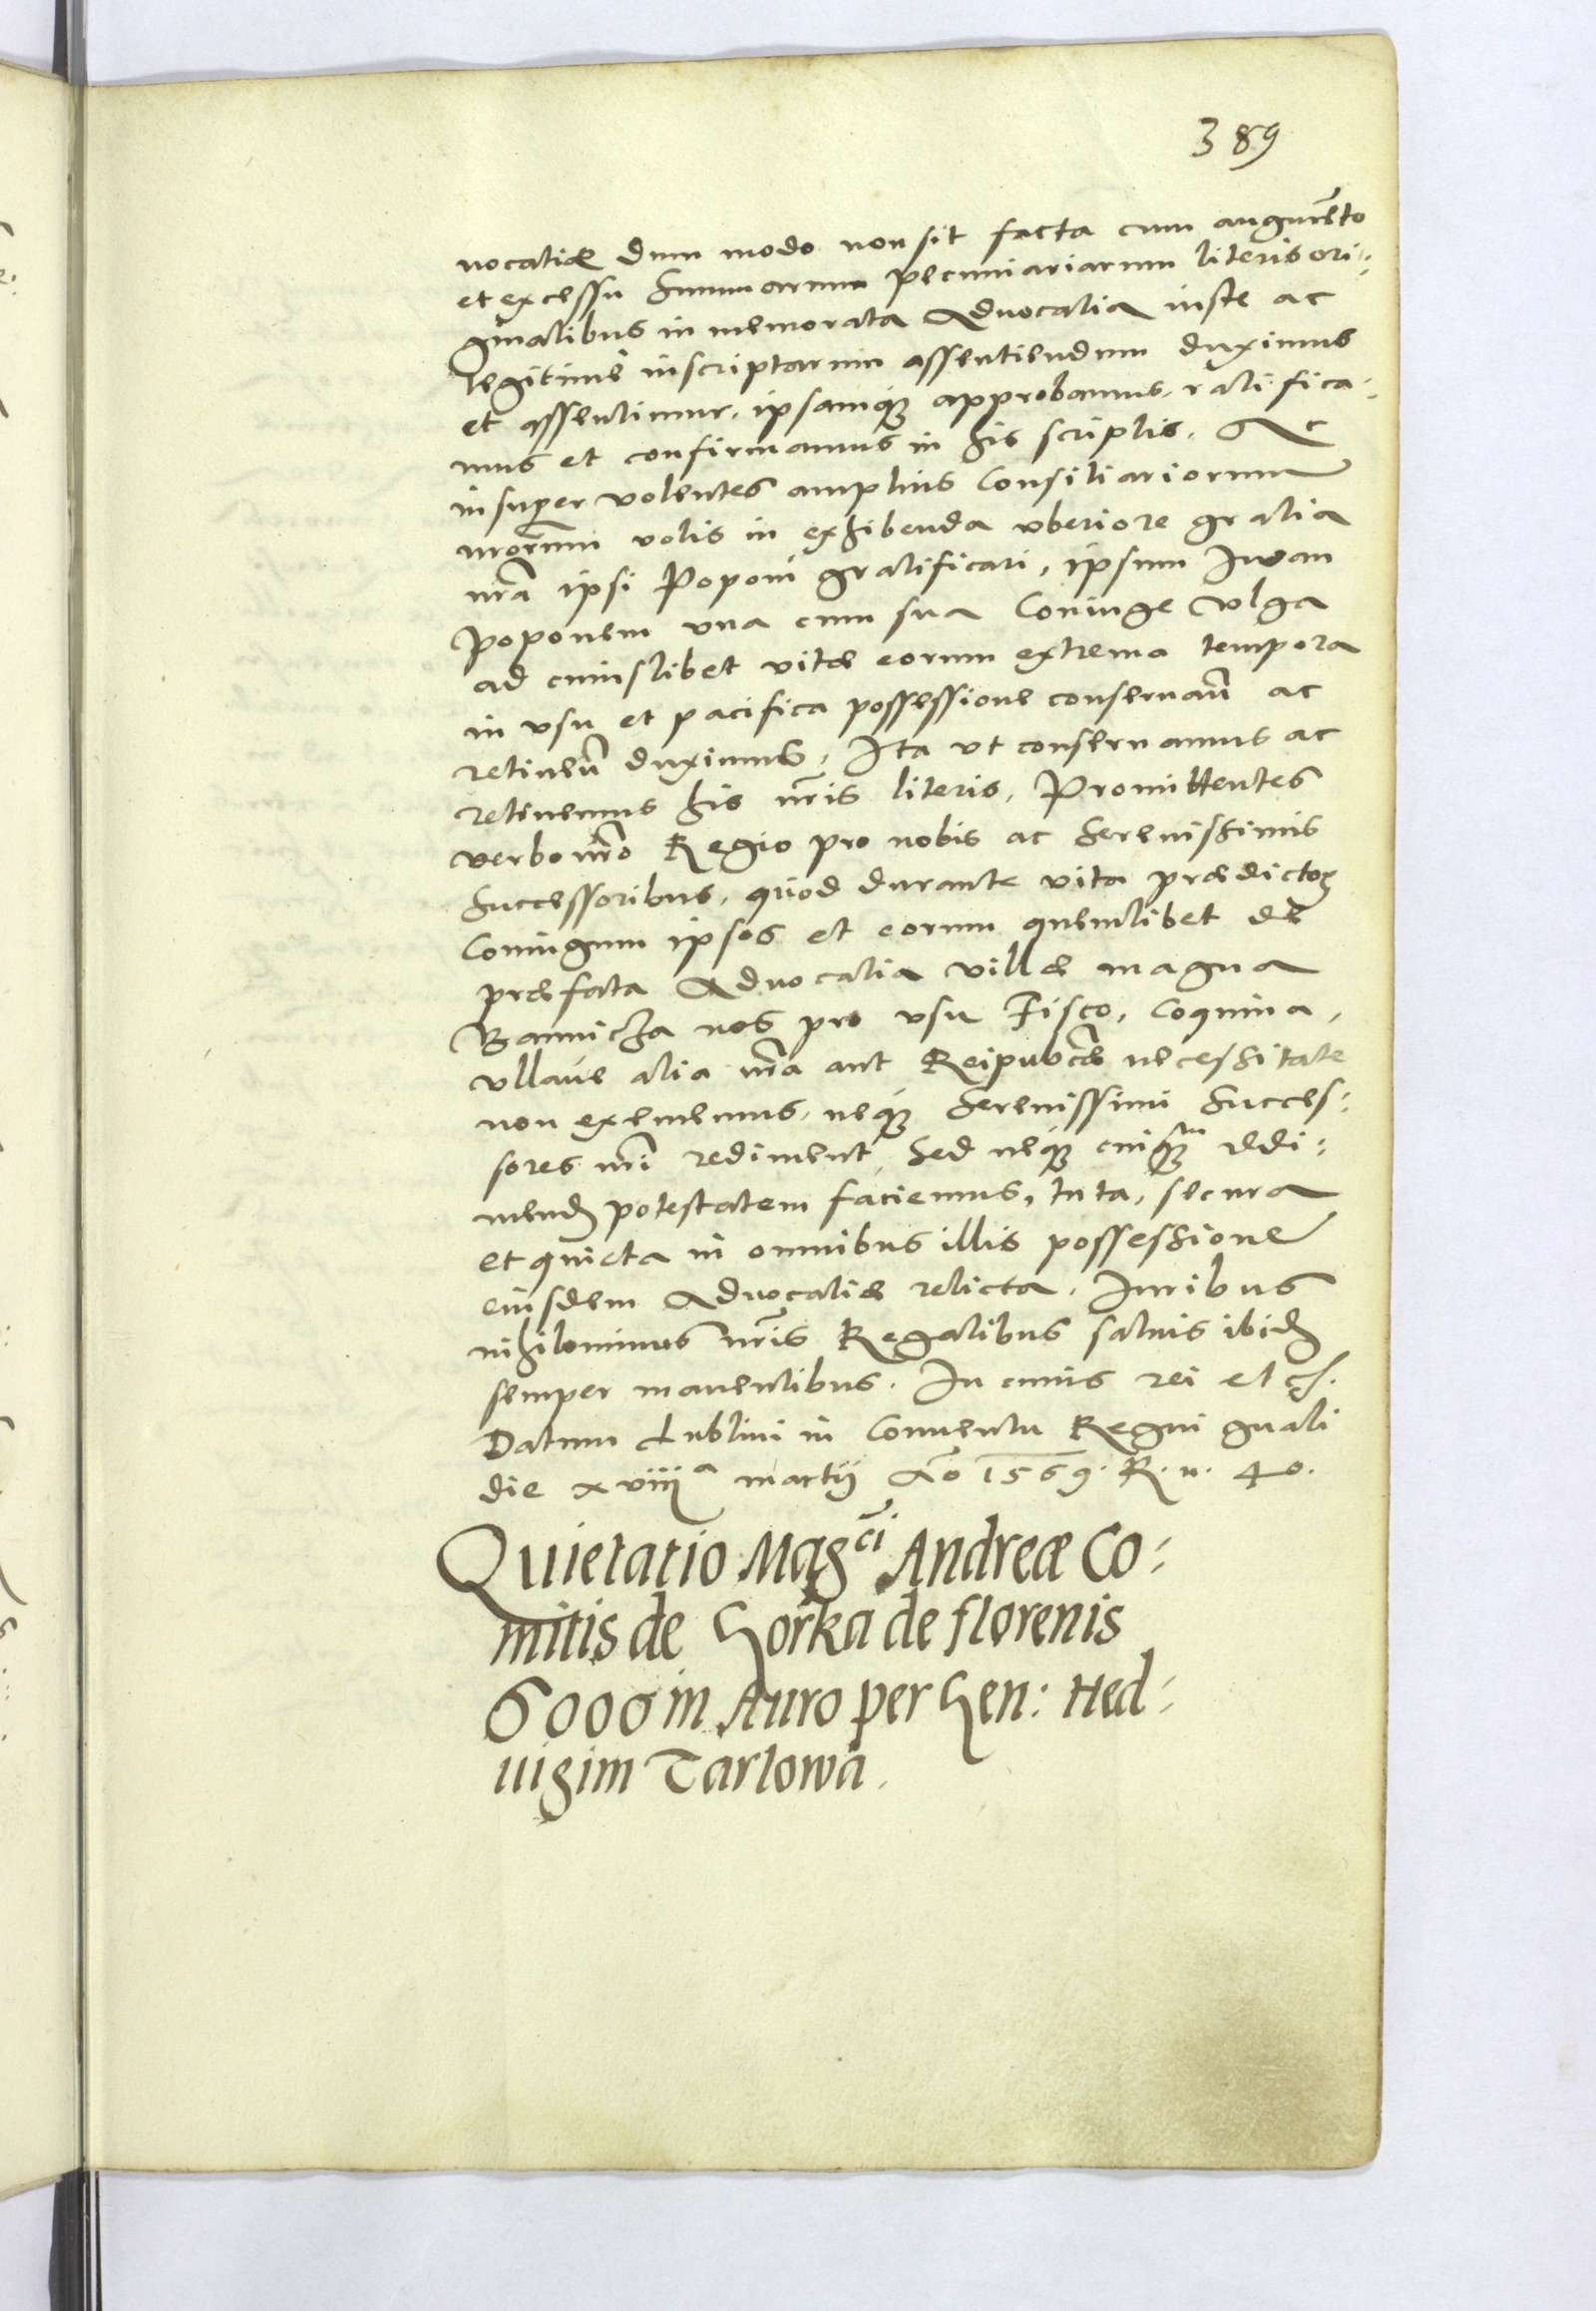 389
uocatiæ dum modo non sit facta cum augmẽto
et excessu summarum pecuniariarum literis ori:
ginalibus in memorata Aduocatia iuste ac
legitime inscriptarum assentiendum duximus
et assentimur, ipsamq́; approbamus, ratifica:
mus et confirmamus in his scriptis. Ac
insuper volentes amplius Consiliariorum
nrõrum votis in exhibenda vberiore gratia
nrã ipsi Poponi gratificari, ipsum Iwan
Poponem vna cum sua Coniuge Olga
ad cuiuslibet vitæ eorum extrema tempora
in vsu et pacifica possessione conseruañ ac
retineñ duximus, Ita vt conseruamus ac
retinemus his nrĩs literis, Promittentes
verbo nrõ Regio pro nobis ac Serenissimis
Successoribus, quod durante vita prædictoꝝ
Coniugum ipsos et eorum quemlibet de
præfata Aduocatia villæ magna
Bannicza nos pro vsu Fisco, Coquina,
vllaue alia nrã aut Reipubcæ necessitate
non eximemus, neq́; Serenissimi Succes:
sores nrĩ rediment, Sed neq́; cuiq̃m redi:
mendi potestatem faciemus, tuta, secura
et quieta in omnibus illis possessione
eiusdem Aduocatiæ relicta. Iuribus
nihilominus nrĩs Regalibus saluis ibidem
semper manentibus. In cuius rei et c̃.
Datum Lublini in Conuentu Regni gnali
die xviiij a martij Aõ 1569. R. n. 40.
Quietatio Mag̃ci Andreæ Co:
mitis de Gorka de florenis
6000 in Auro per Gen: Hed:
uigim Tarlowa.